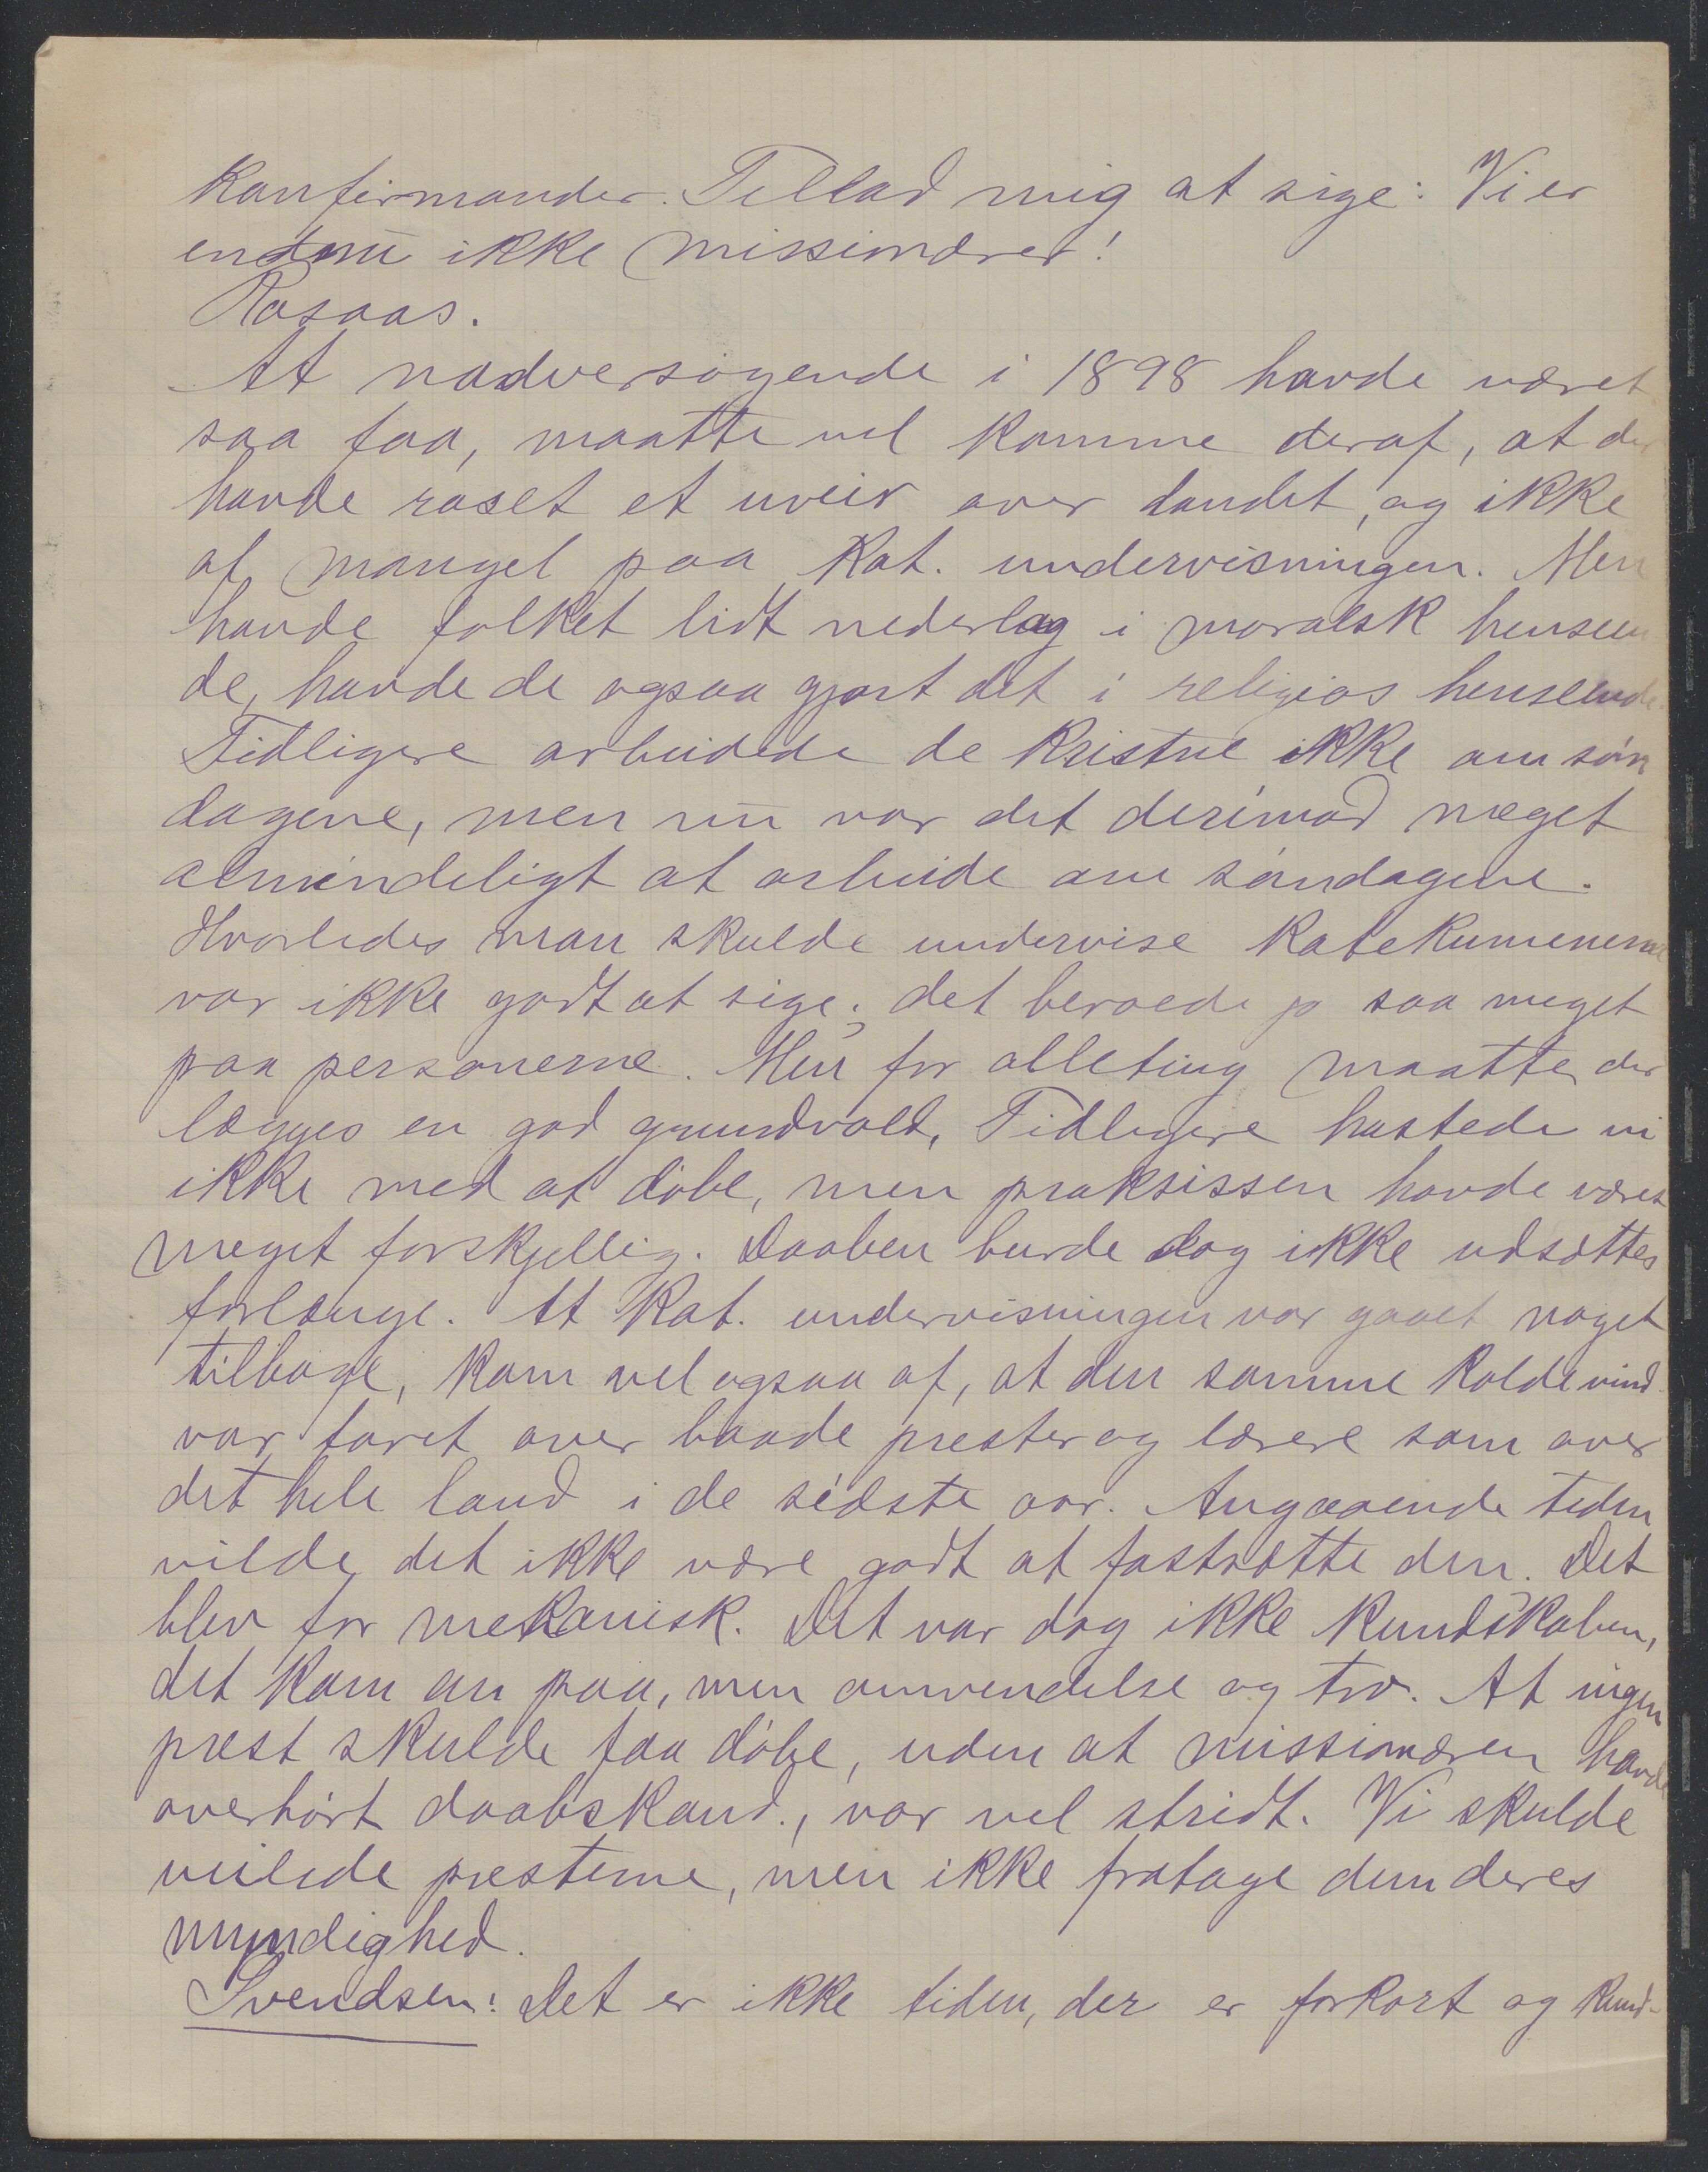 Konfirmander. Tillad mig at sige: Vi er
endnu ikke missionærer!
Rosaas.
At nadversøgende i 1898 havde været
saa faa, maatte vel komme deraf, at der
havde raset et uveir over landet, og ikke
af mangel paa Kat. undervisningen. Men
havde folket lidt nederlag i moralsk henseen
de, havde de ogsaa gjort det i religiøs henseende.
Tidligere arbeidede de Kristne ikke om søn
dagene, men nu var det derimod meget
almindeligt at arbeide om søndagene.
Hvorledes man skulde undervise Katekumenerne
var ikke godt at sige; det beroede jo saa meget
paa personerne. Men for alleting maatte der
lægges en god grundvold, Tidligere hastede vi
ikke med at døbe, men praksissen havde været
meget forskjellig. Daaben burde dog ikke udsættes
forlænge. At Kat. undervisningen var gaaet noget
tilbage, kom vel ogsaa af, at den samme kolde vind
var faret over baade prester og lærere som over
det hele land i de sidste aar. Angaaende tiden
vilde det ikke være godt at fastsætte den. Det
blev for mekanisk. Det var dog ikke Kundskaben,
det kom an paa, men omvendelse og tro. At ingen
prest skulde faa døbe, uden at missionæren havde
overhørt daabskand., var vel stridt. Vi skulde
veilede presterne, men ikke fratage dem deres
myndighed.
Svendsen: Det er ikke tiden, der er forkort og Kund-